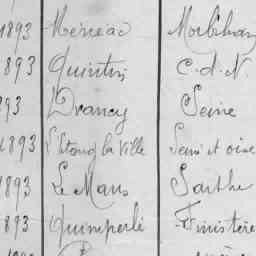 1893 Ménéac Morbihan
1893 Quintin C.d.N.
1893 Drancy Seine
1893 L'Etang la Ville Seine et oise
1893 Le Mans Sarthe
1893 Quimperlé Finistère